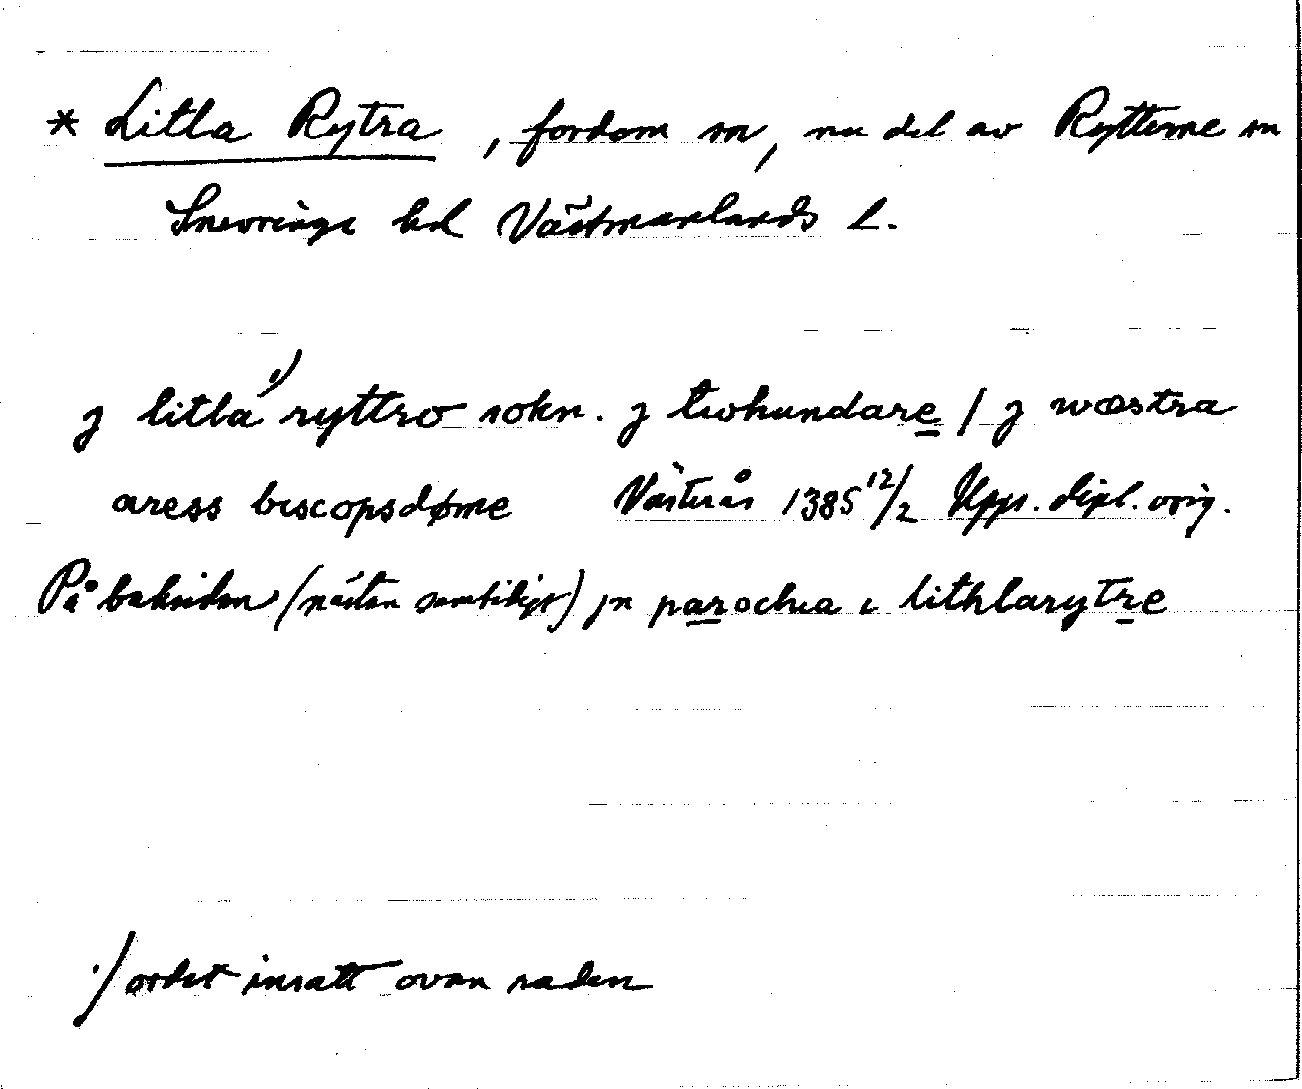 * Litla Rytra, fordom sn, nu del av Rytterne sn
Snevringe hd Västmanlands l.
j litla ¹⁾ ryttro sokn. j twhundare / j wæstra
aress biscopsdøme Västerås 1385 12/2 Upps. dipl. orig.
På baksidan (nästan samtidigt) jn parochia i lithlarytre
¹/ ordet insatt ovan raden